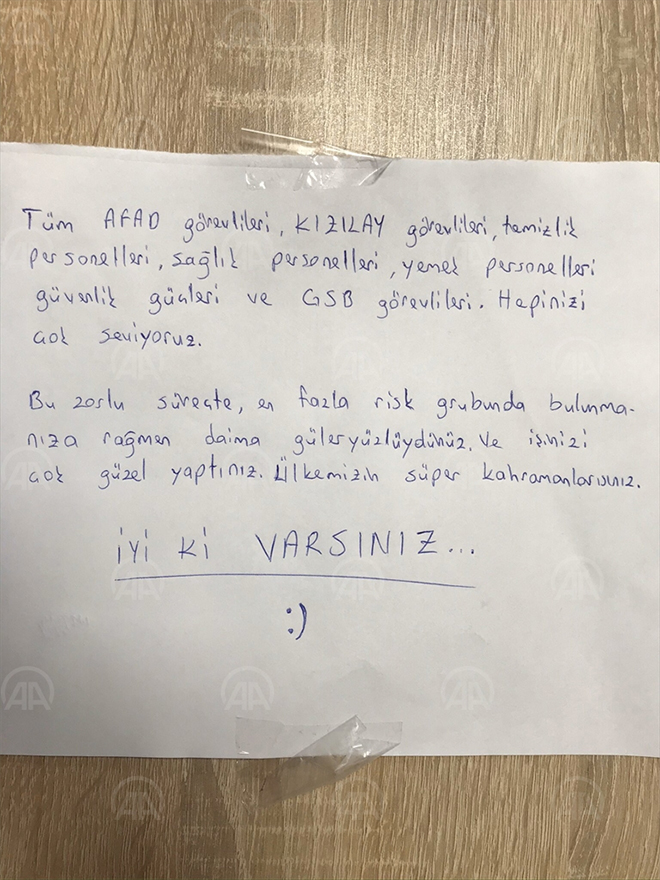 Tüm AFAD görevlileri, KIZILAY görevlileri, temizlik
personelleri, sağlık personelleri, yemek personelleri
güvenlik güçleri ve GSB görevlileri. Hepinizi
çok seviyoruz.
Bu zorlu süreçte, en fazla risk grubunda bulunma-
nıza rağmen daima güleryüzlüydünüz. Ve işinizi
çok güzel yaptınız. Ülkemizin süper kahramanlarısınız.
İYİ Kİ VARSINIZ...
:)
AA